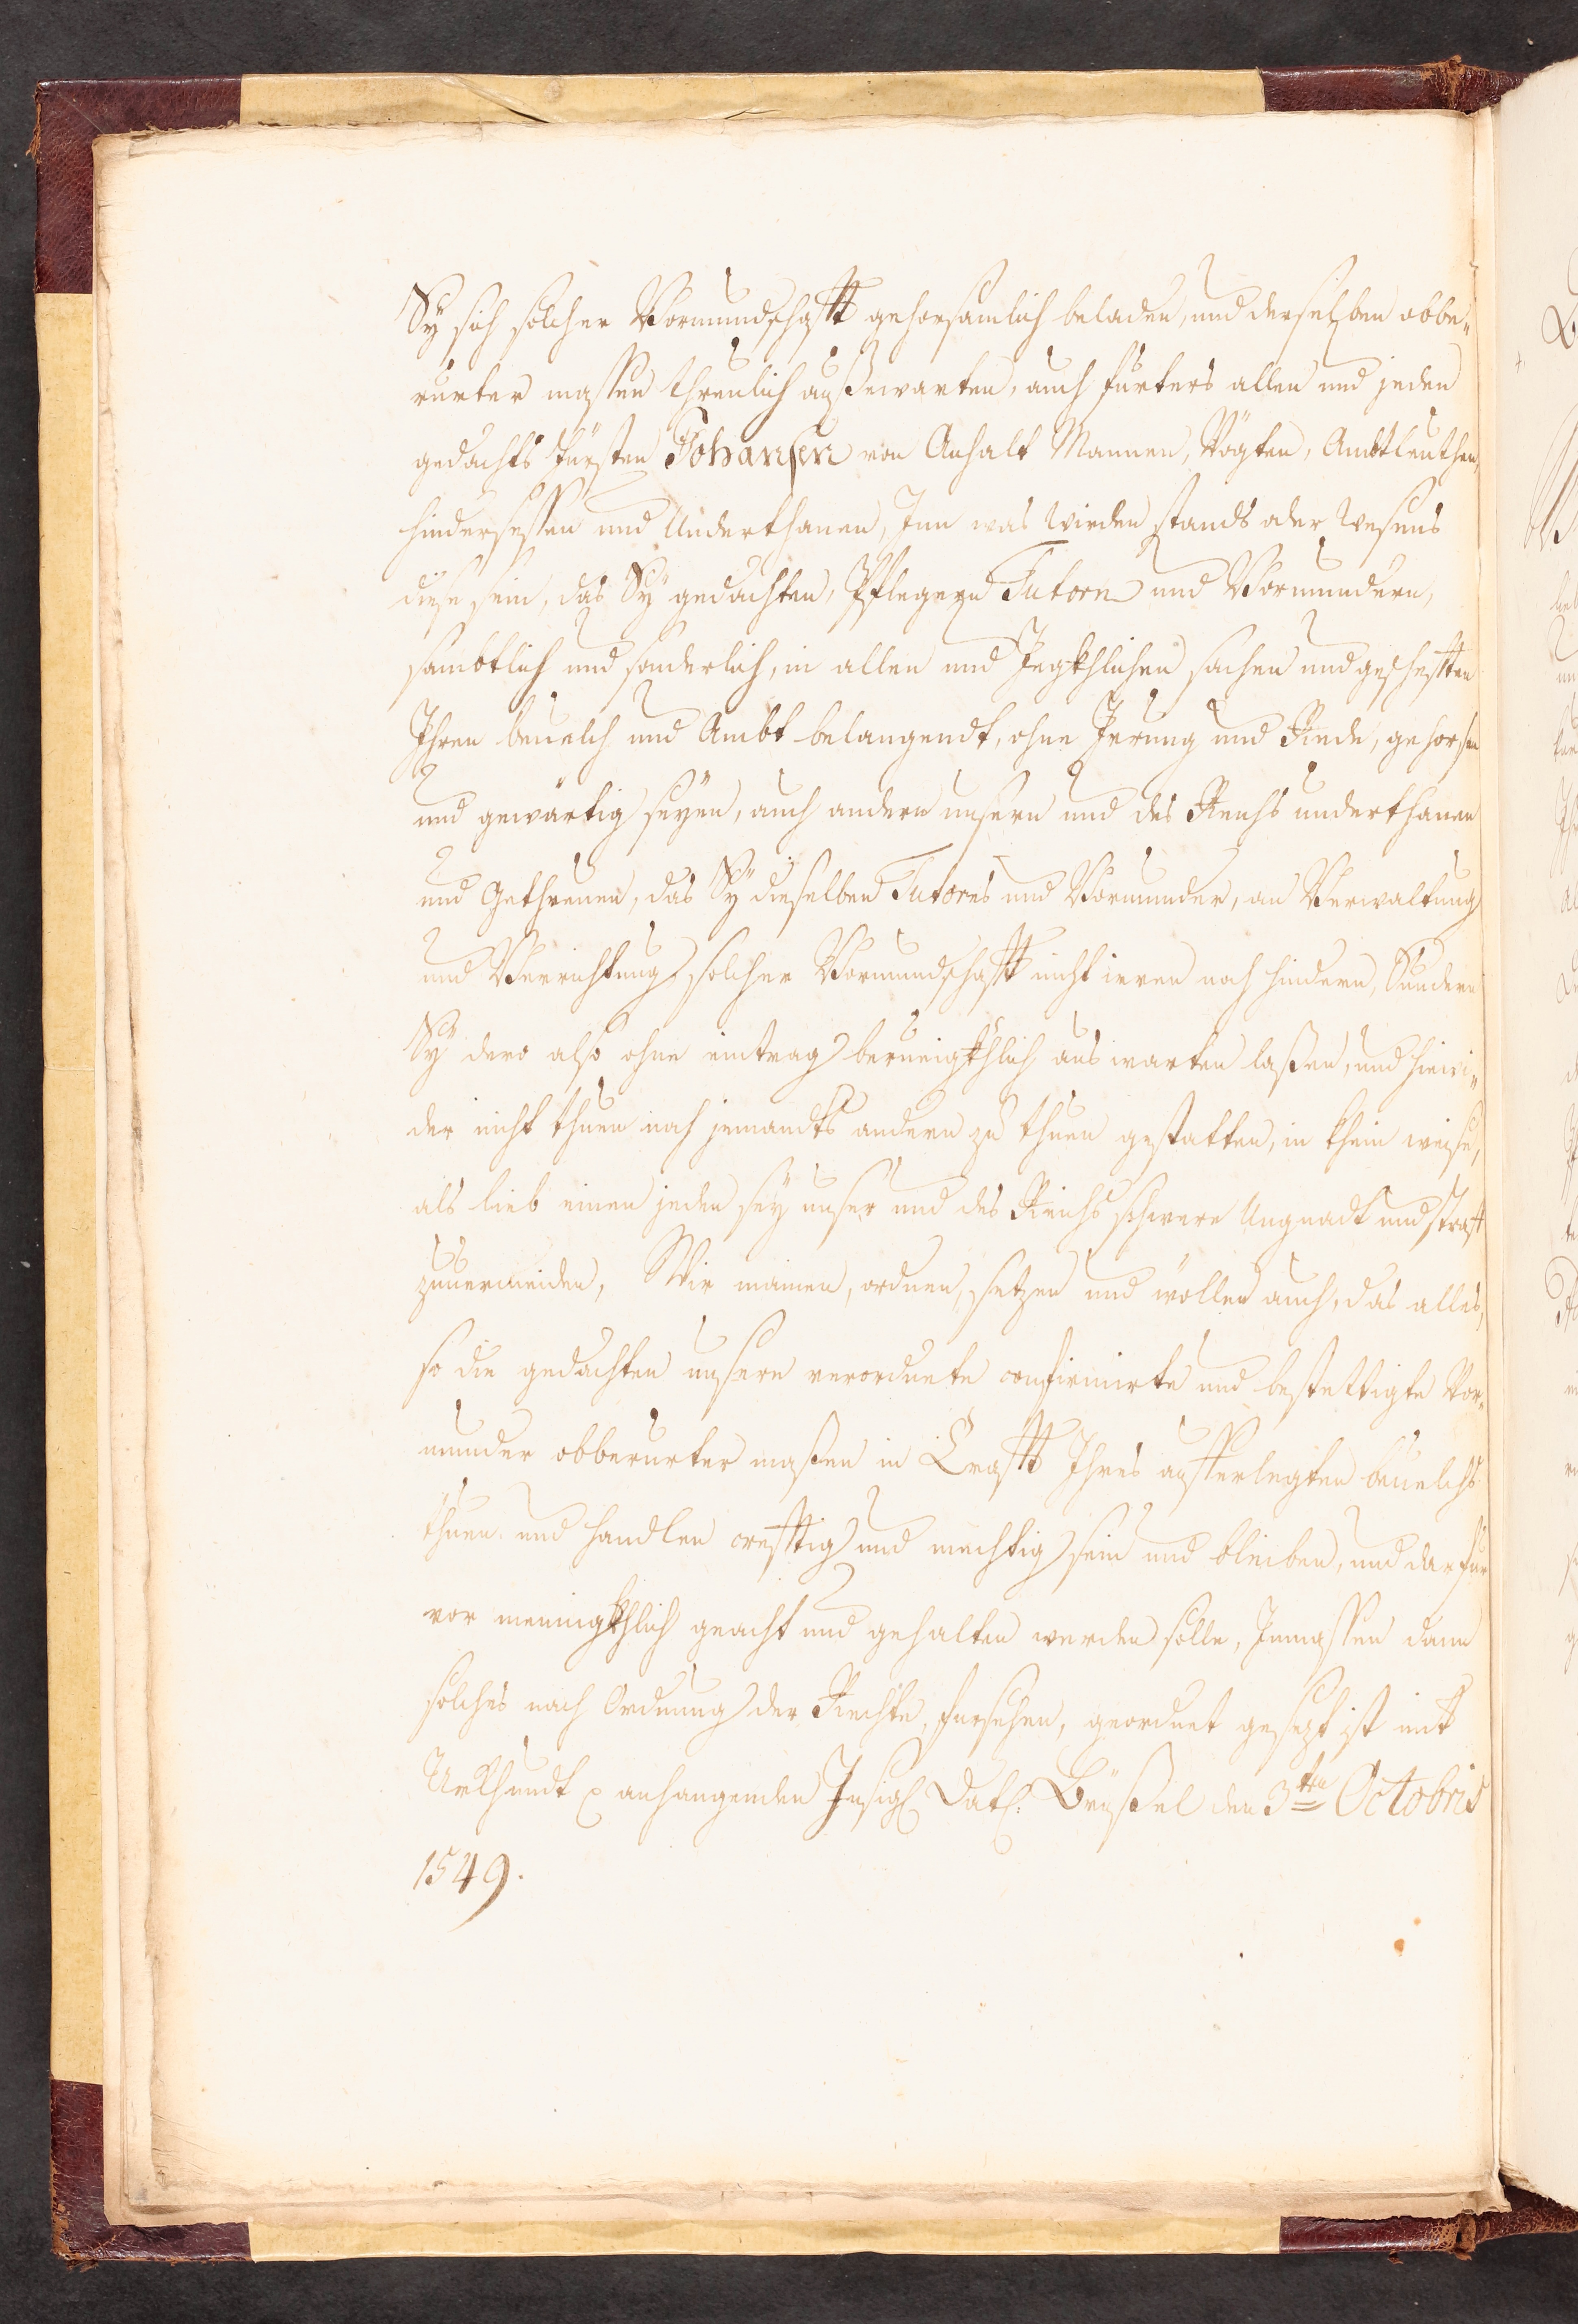 Sÿ sich solcher Vormundschafft gehorsamlich beladen, und derselben obbe„
rurter massen threulich außwarten, auch furters allen und jeden
gedachts Fürsten Johansen von Anhalt Mannen, Vögten, Ambtleuthen,
hindersessen und Underthanen, Inn was Wirden stands oder Wesens
diese sein, das Sÿ gedachten, Pflegern Tutorn und Vormundern,
sambtlich und sonderlich, in allen und Jegkhlichen sachen und geschefften
Ihren beuelch und Ambt belangendt, ohne Irrung und Einede, gehorsam
und gewärtig seÿen, auch andern unsern und des Reichs underthanen
und Gethreuen, das Sÿ dieselben Tutores und Vormunder, an Verwaltung
und Verrichtung solcher Vormundschafft nicht irren noch hindern, Sundern
Sÿ dero also ohne eintrag berueigkhlich aus warten laßen, und hiewi„
der nicht thuen noch jemandts andern zu thuen gestatten, in khein weise,
als lieb einen jeden seÿ unser und des Reichs schwere Ungnadt und straff
zuuermeiden, Wir mainen, ordnen, setzen und wöllen auch, das alles,
so die gedachten unsere verordnete confirmirte und bestettigte Vor„
munder obberurter maßen in Crafft Ihres aufferlegten beuelchs
thuen und handlen crefftig und mechtig sein und bleiben, und darfur
vor meinigkhlich geacht und gehalten werden solle, Inmassen dann
solches nach Ordnung der Rechte, fursehen, geordnet gesezt ist mit
Urkhundt anhangenden Insigl Datl: Brüßel den 3ten Octobris
1549.